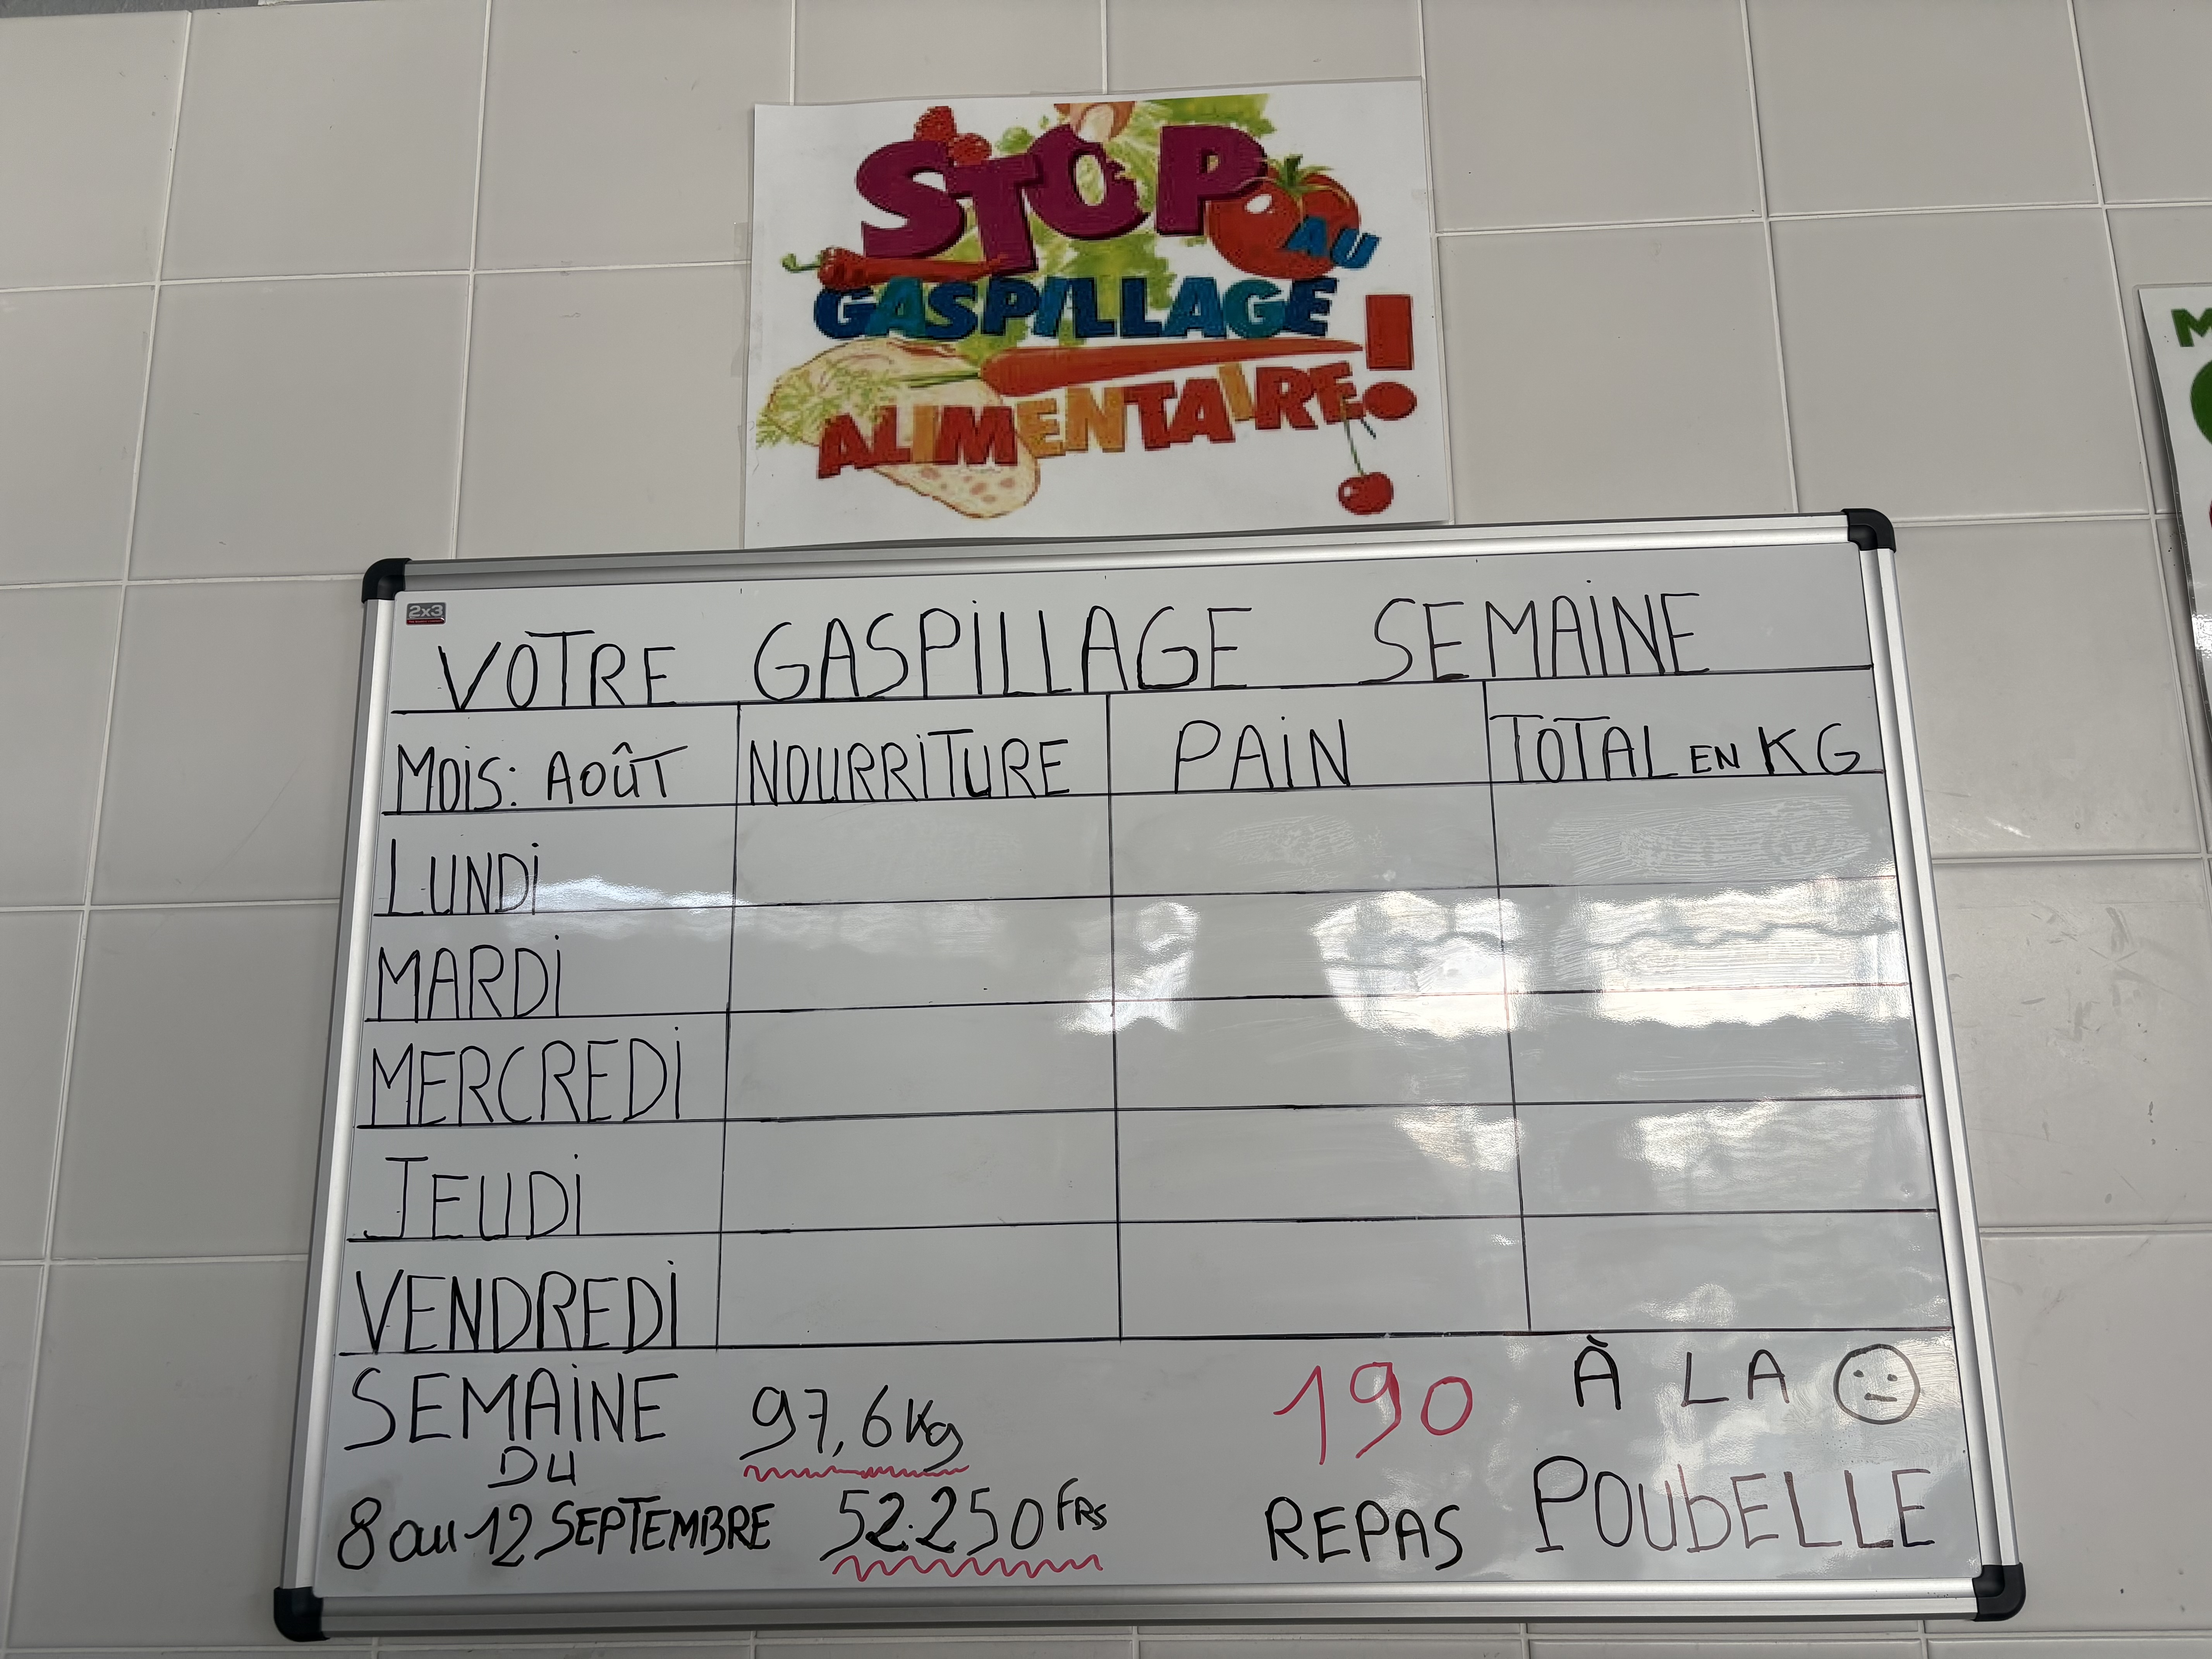 STOP
AU
GASPILLAGE
ALIMENTAIRE!
M
2x3
VOTRE GASPILLAGE SEMAINE
MOIS: AOÛT NOURRITURE PAIN TOTAL EN KG
LUNDI
MARDI
MERCREDI
JEUDI
VENDREDI
SEMAINE 97,6 Kg 190 À LA
DU
8 au 12 SEPTEMBRE 52.250 FRS REPAS POUbELLE